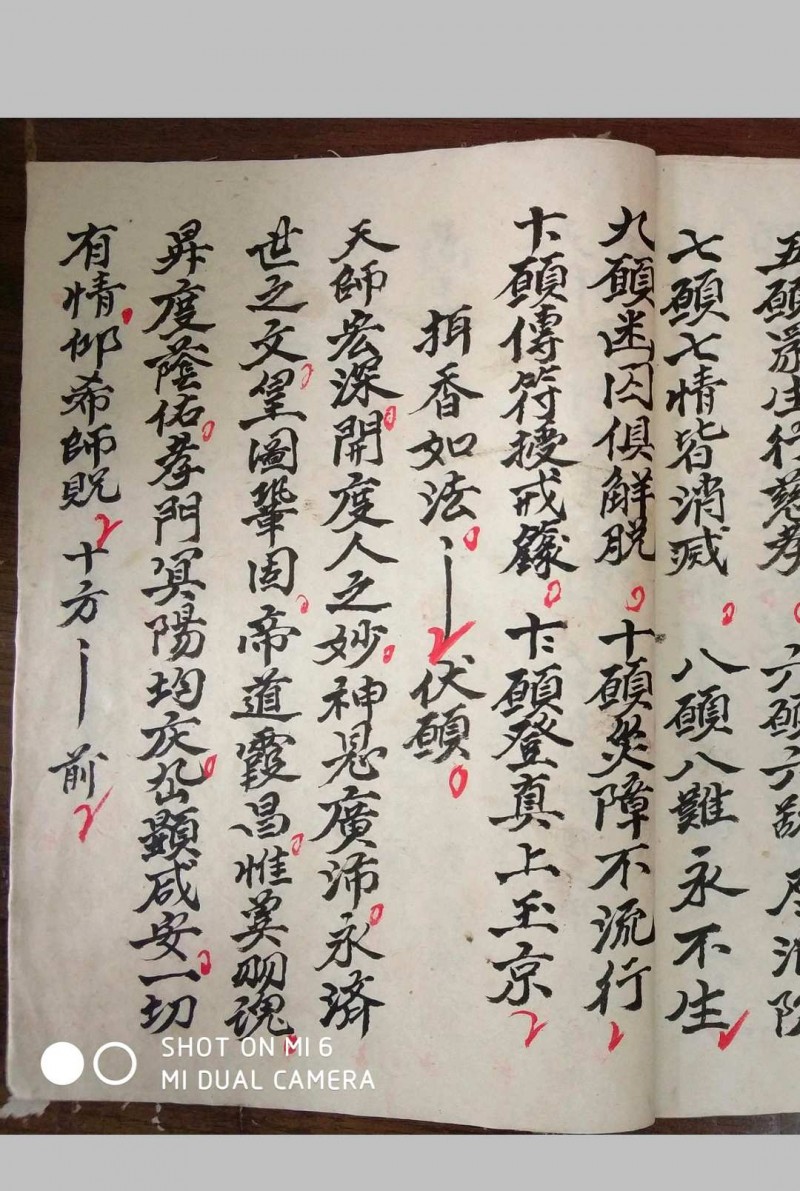 五願 生行慈孝 六願六 
七願七情皆消滅 八願八難永不生
九願幽囚俱解脱 十願災障不流行
十一願傳符授戒籙 十二願登真上玉京
拜香如法 伏願
天師宏深開度人之妙神恩廣沛永濟
世之文皇圖鞏固帝道霞昌惟冀 魂
昇度蔭佑孝門冥陽均庆 顯咸安一切
有情仰希師 十方 前
SHOT ON MI 6
MI DUAL CAMERA